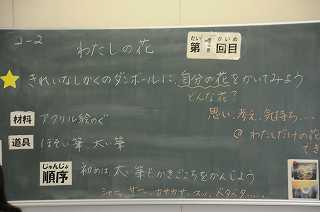 2-2
わたしの花
だい かいめ
第 回目
きれいなしかくのダンボールに、自分の花をかいてみよう
どんな花？
思い、考え、気持ち…
材料 アクリル絵のぐ
@ わたしだけの花
でき
道具 ほそい筆、太い筆
じゅんじょ
順序 初めは、太い筆でかきごこちをかんじよう
シャシャ、サー、カサカサ、スッ、ペタペタ……